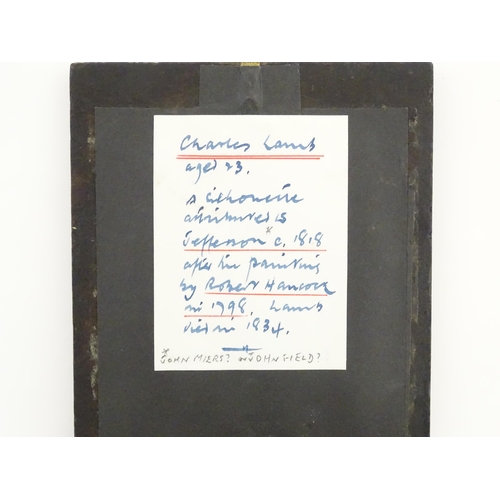 Charles Lamb
aged 23.
a silhouette
attributed to
Jefferson * c. 1818
after the painting
by Robert Hancock
in 1798. Lamb
died in 1834.
* JOHN MIERS? or JOHN FIELD?